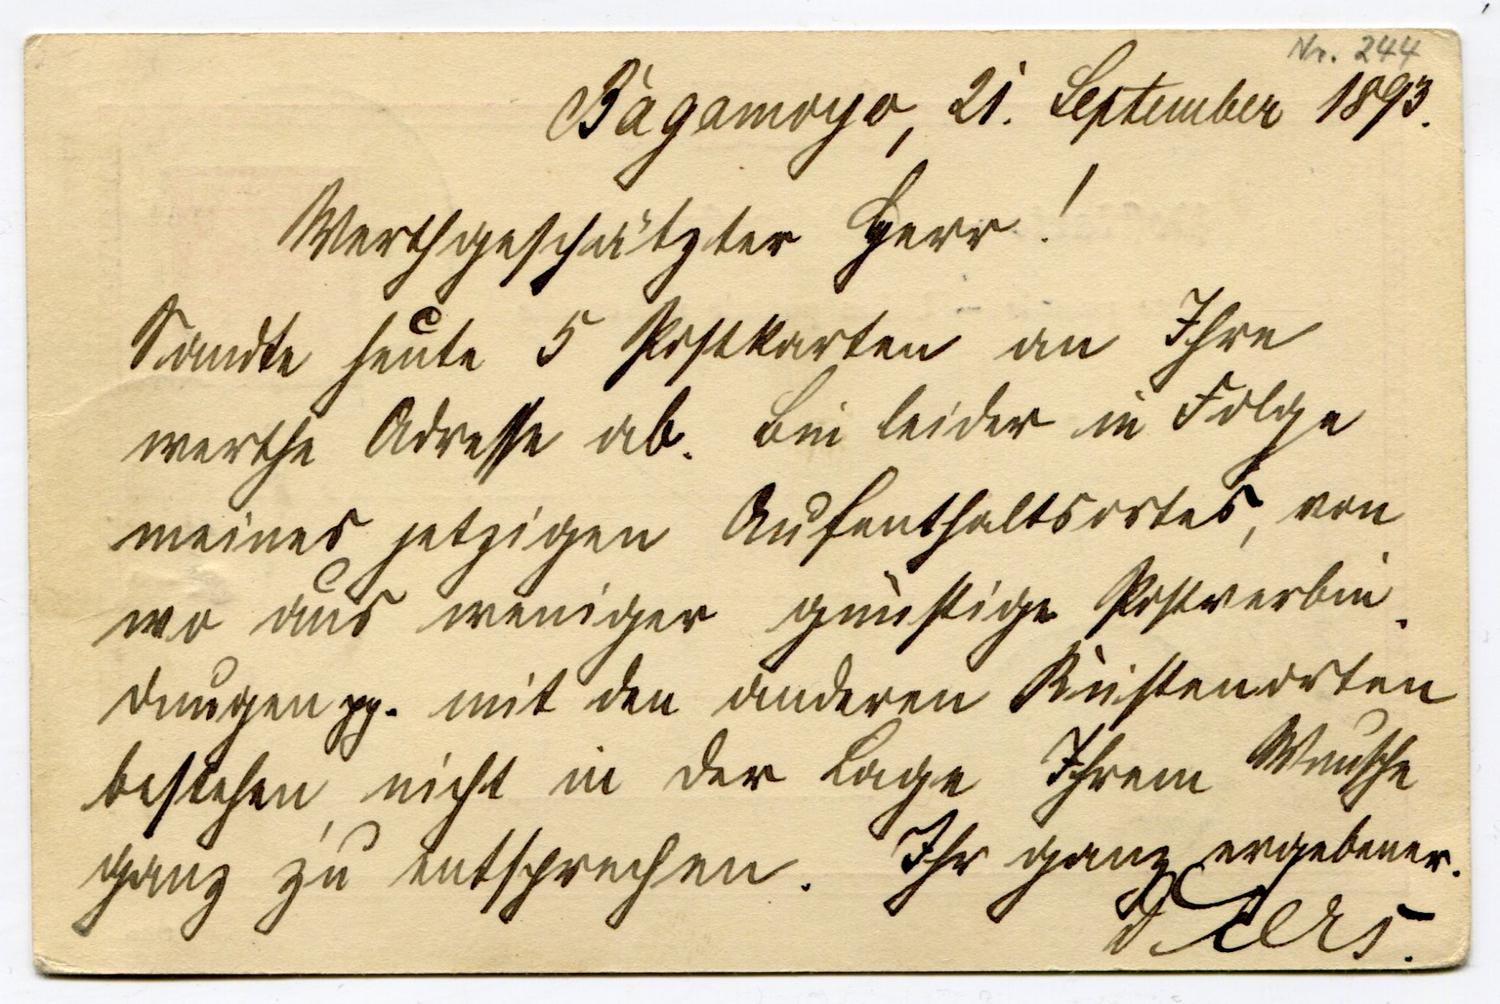 Nr. 244
Bagamoyo, 21. September 1893.
Werthgeschätzter Herr!
Sandte heute 5 Postkarten an Ihre
werthe Adresse ab. Bin leider in Folge
meines jetzigen Aufenthaltsortes, von
wo aus weniger günstige Postverbin-
dungen pp. mit den anderen Küstenorten
bestehen, nicht in der Lage Ihrem Wunsche
ganz zu entsprechen. Ihr ganz ergebener.